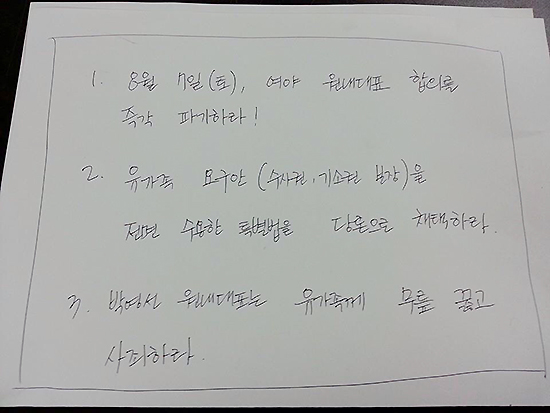 1. 8월 7일(토), 여야 원내대표 합의를
즉각 파기하라!
2. 유가족 요구안 (수사권, 기소권 보장)을
전면 수용한 특별법을 당론으로 채택하라.
3. 박영선 원내대표는 유가족께 무릎 꿇고
사죄하라.